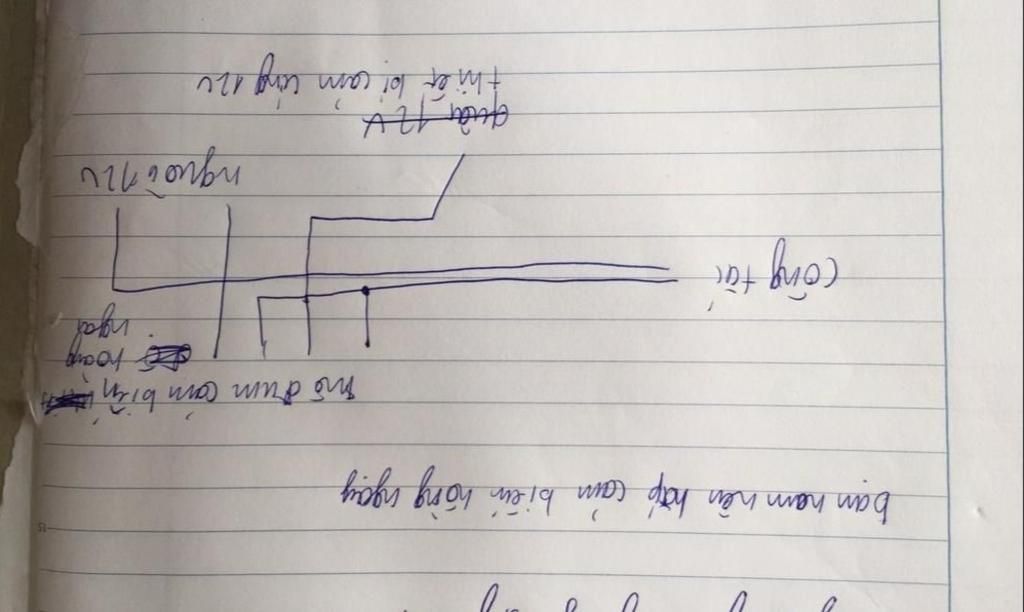 bạn nam nên hộp cảm biến hồng ngoại
mô đum cảm biến
hồng
ngoại
Công tắc
nguồn 12V
quả 12V
thiết bị cảm ứng 12V